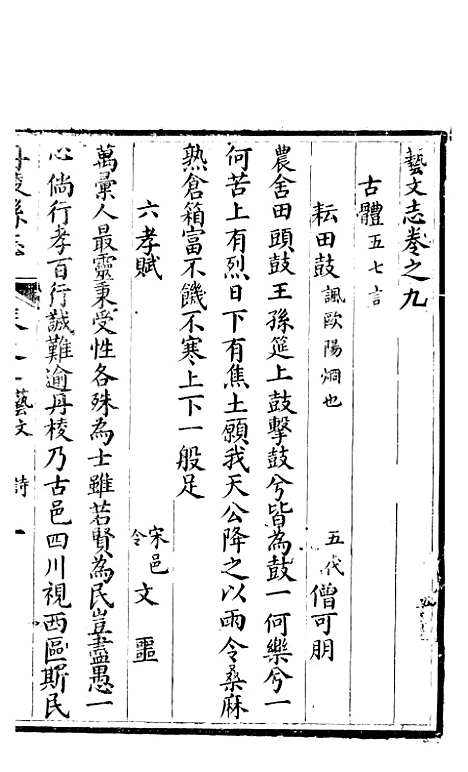 藝文志卷之九
古體五七言
耘田鼓諷歐陽烱也 五代僧可朋
農舍田頭鼓王孫筵上鼓擊鼓兮皆為鼓一何樂兮一
何苦上有烈日下有焦土願我天公降之以雨令桑麻
熟倉箱富不饑不寒上下一般足
六孝賦 宋邑令文噩
萬彙人最靈秉受性各殊為士雖若賢為民豈盡愚一
心倘行孝百行誠難逾丹棱乃古邑四川視西區斯民
丹稜縣志 卷之 藝文 詩 一